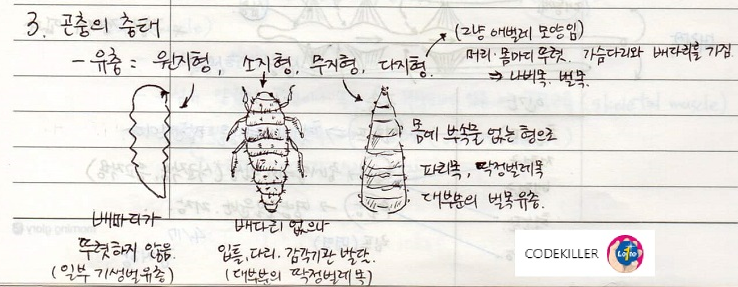 3. 곤충의 충태
- 유충 : 원지형, 소지형, 무지형, 다지형.
(그냥 애벌레 모양임)
머리·몸마디 뚜렷. 가슴다리와 배다리를 가짐.
⇒ 나비목. 벌목.
몸에 부속물 없는 형으로
파리목, 딱정벌레목
대부분의 벌목유충.
배마디가
뚜렷하지 않음.
(일부 기생벌유충)
배다리 없으나
입틀, 다리. 감각기관 발달.
(대부분의 딱정벌레목)
CODEKILLER